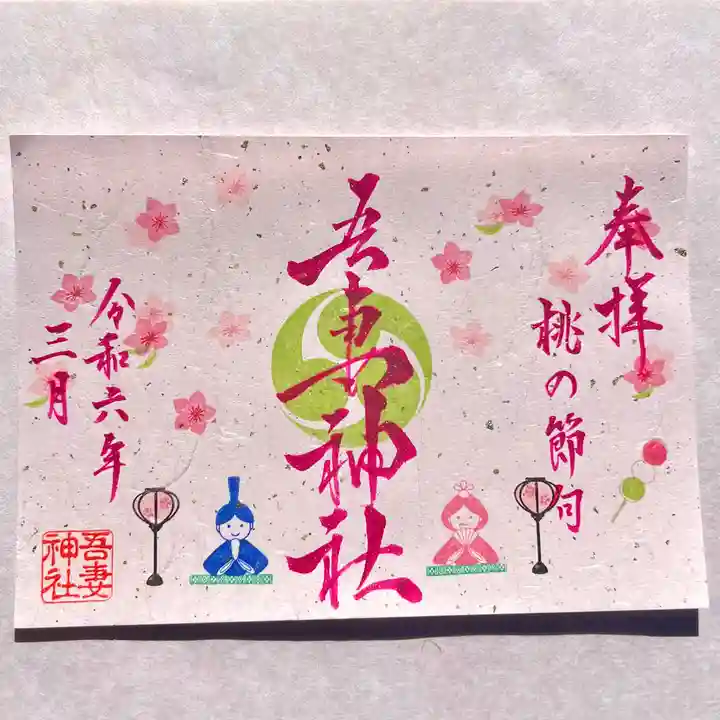 奉拝
桃の節句
吾妻神社
令和六年
三月
吾妻
神社